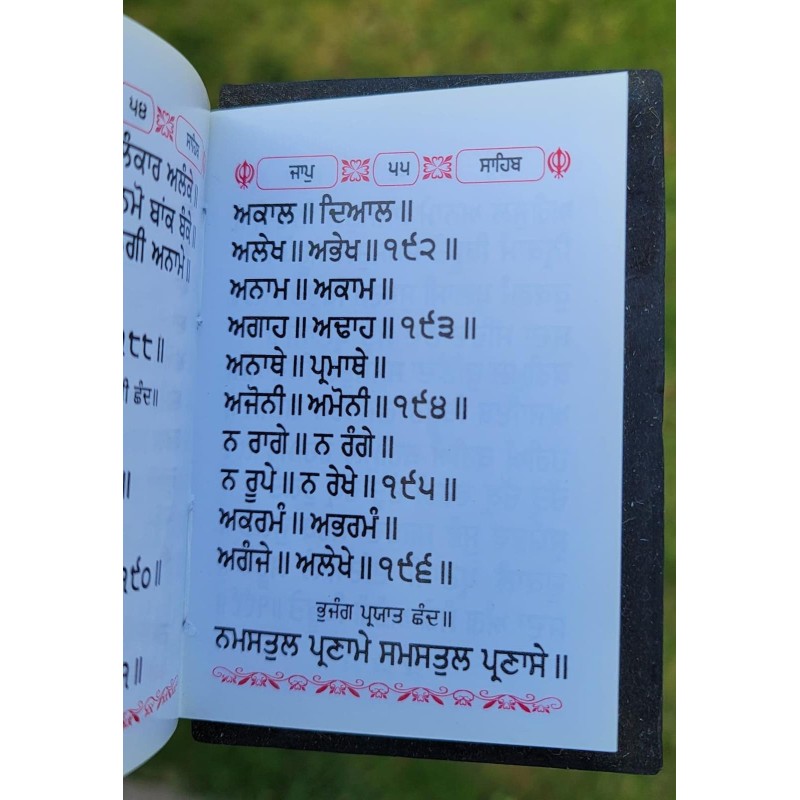 ੫੪
ਸਾਹਿਬ
ਅਲੰਕੇ॥
ਨਮੋ ਬਾਂਕ ਬੰਕੇ॥
ਅਨਾਮੇ॥
ਛੰਦ॥
ਜਾਪੁ ੫੫ ਸਾਹਿਬ
ਅਕਾਲ॥ ਦਿਆਲ॥
ਅਲੇਖ॥ ਅਭੇਖ॥ ੧੯੨॥
ਅਨਾਮ॥ ਅਕਾਮ॥
ਅਗਾਹ॥ ਅਢਾਹ॥ ੧੯੩॥
ਅਨਾਥੇ॥ ਪ੍ਰਮਾਥੇ॥
ਅਜੋਨੀ॥ ਅਮੋਨੀ॥ ੧੯੪॥
ਨ ਰਾਗੇ॥ ਨ ਰੰਗੇ॥
ਨ ਰੂਪੇ॥ ਨ ਰੇਖੇ॥ ੧੯੫॥
ਅਕਰਮੰ॥ ਅਭਰਮੰ॥
ਅਗੰਜੇ॥ ਅਲੇਖੇ॥ ੧੯੬॥
ਭੁਜੰਗ ਪ੍ਰਯਾਤ ਛੰਦ॥
ਨਮਸਤੁਲ ਪ੍ਰਣਾਮੇ ਸਮਸਤੁਲ ਪ੍ਰਣਾਸੇ॥